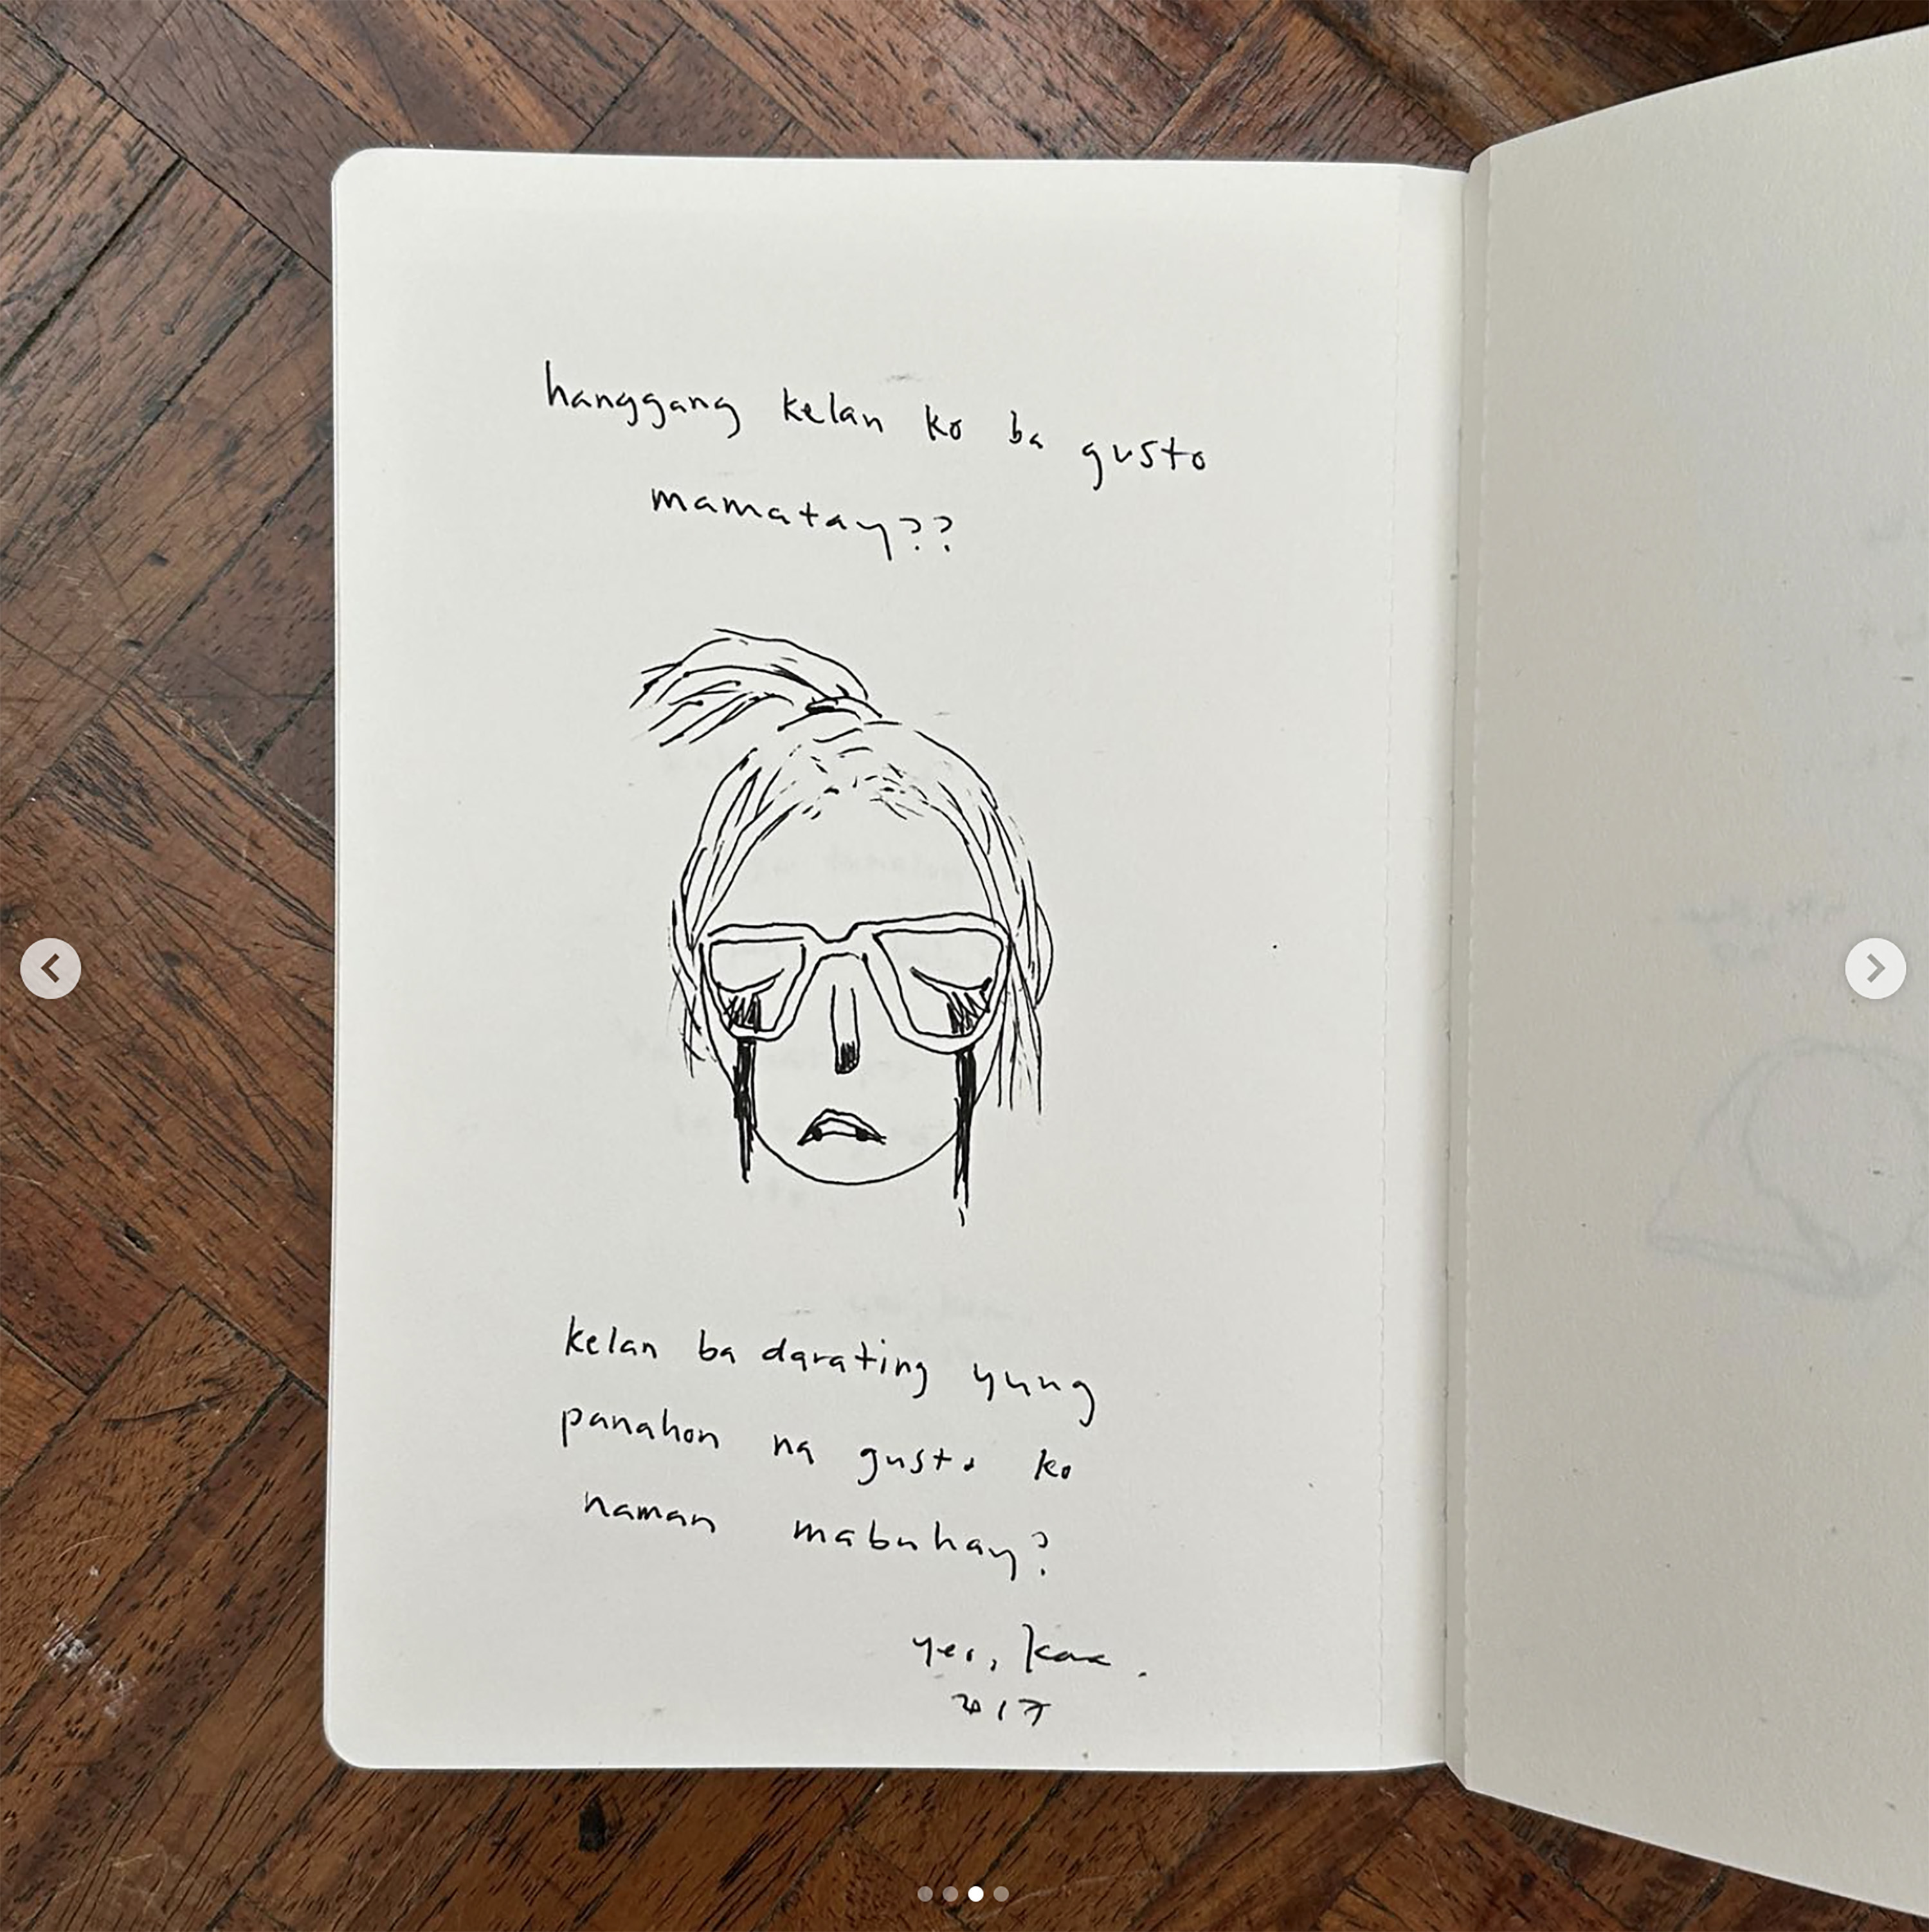 hanggang kelan ko ba gusto
mamatay??
kelan ba darating yung
panahon na gusto ko
naman mabuhay?
yes, kae.
2017